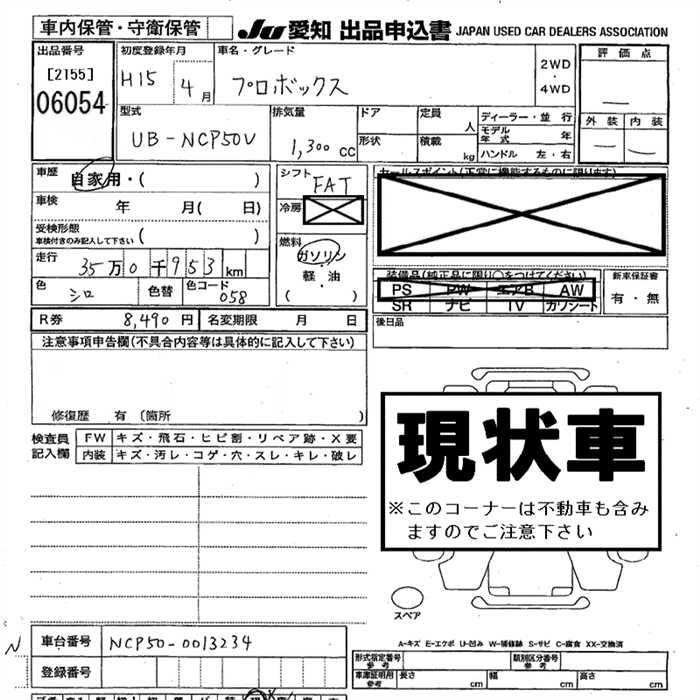 車内保管・守衛保管 JU 愛知 出品申込書 JAPAN USED CAR DEALERS ASSOCIATION
出品番号 初度登録年月 車名・グレード 評価点
[2155] H15 4月 プロボックス 2WD・4WD
06054
型式 排気量 ドア 定員 人 ディーラー・並行
UB-NCP50V 1,300cc 形状 積載 kg モデル年式 年 外装 内装
ハンドル 左・右
車歴 自家用・( ) シフト FAT セールスポイント(正常に機能するものに限ります)
車検 年 月( 日) 冷房
受検形態 ( )
車検付きのみ記入して下さい
燃料 ガソリン 軽・油 ( )
走行 35万0千953km 装備品(純正品に限り○をつけてください) 新車保証書
色 シロ 色替 色コード 058 PS PW エアB AW 有・無
SR ナビ TV カワシート
R券 8,490円 名変期限 月 日 後日品
注意事項申告欄(不具合内容等は具体的に記入して下さい)
修復歴 有(箇所 )
検査員記入欄 FW キズ・飛石・ヒビ割・リペア跡・X要
内装 キズ・汚レ・コゲ・穴・スレ・キレ・破レ
現状車
※このコーナーは不動車も含み
ますのでご注意下さい
スペア
A-キズ E-エクボ U-凹み W-補修跡 S-サビ C-腐食 XX-交換済
N 車台番号 NCP50-0013234
登録番号
形式指定番号 参考 類別区分番号 参考
車庫証明用 参考 長さ cm 幅 cm 高さ cm